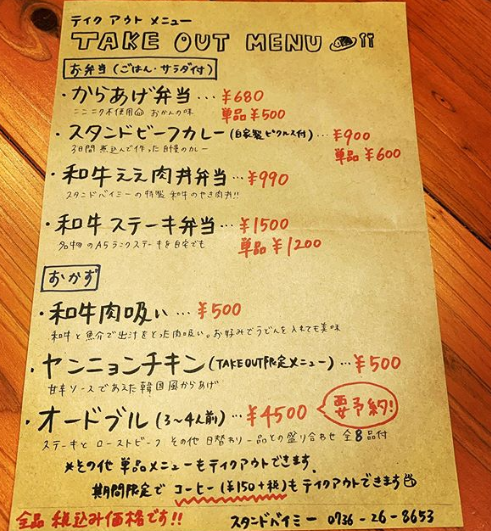 テイクアウトメニュー
TAKE OUT MENU
お弁当(ごはん・サラダ付)
・からあげ弁当…¥680
ニンニク不使用 おかんの味 単品¥500
・スタンドビーフカレー(自家製ピクルス付)…¥900
3日間煮込んで作った自慢のカレー 単品¥600
・和牛ええ肉丼弁当…¥990
スタンドバイミーの特製 和牛のやき肉丼!!
・和牛ステーキ弁当…¥1500
名物のA5ランクステーキを自宅でも 単品¥1200
おかず
・和牛肉吸い…¥500
和牛と魚介で出汁をとった肉吸い。お好みでうどんを入れても美味
・ヤンニョンチキン(TAKEOUT限定メニュー)…¥500
甘辛ソースであえた韓国風からあげ
・オードブル(3~4人前)…¥4500 要予約!
ステーキとローストビーフ その他 日替わり一品との盛り合わせ 全8品付
*その他 単品メニューもテイクアウトできます.
期間限定でコーヒー(¥150+税)もテイクアウトできます
全品 税込み価格です!! スタンドバイミー 0736-26-8653